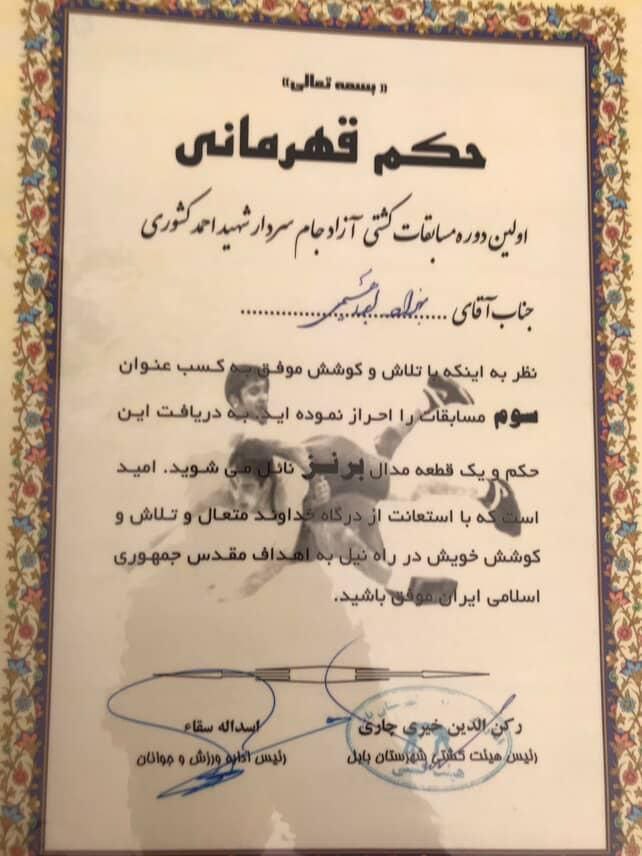 « بسمه تعالی»
حکم قهرمانی
اولین دوره مسابقات کشتی آزاد جام سردار شهید احمد کشوری
جناب آقای
نظر به اینکه با تلاش و کوشش موفق به کسب عنوان
سوم مسابقات را احراز نموده اید. به دریافت این
حکم و یک قطعه مدال برنز نائل می شوید. امید
است که با استعانت از درگاه خداوند متعال و تلاش و
کوشش خویش در راه نیل به اهداف مقدس جمهوری
اسلامی ایران موفق باشید.
رکن الدین خیری چاری
رئیس هیئت کشتی شهرستان بابل
اسداله سقاء
رئیس اداره ورزش و جوانان